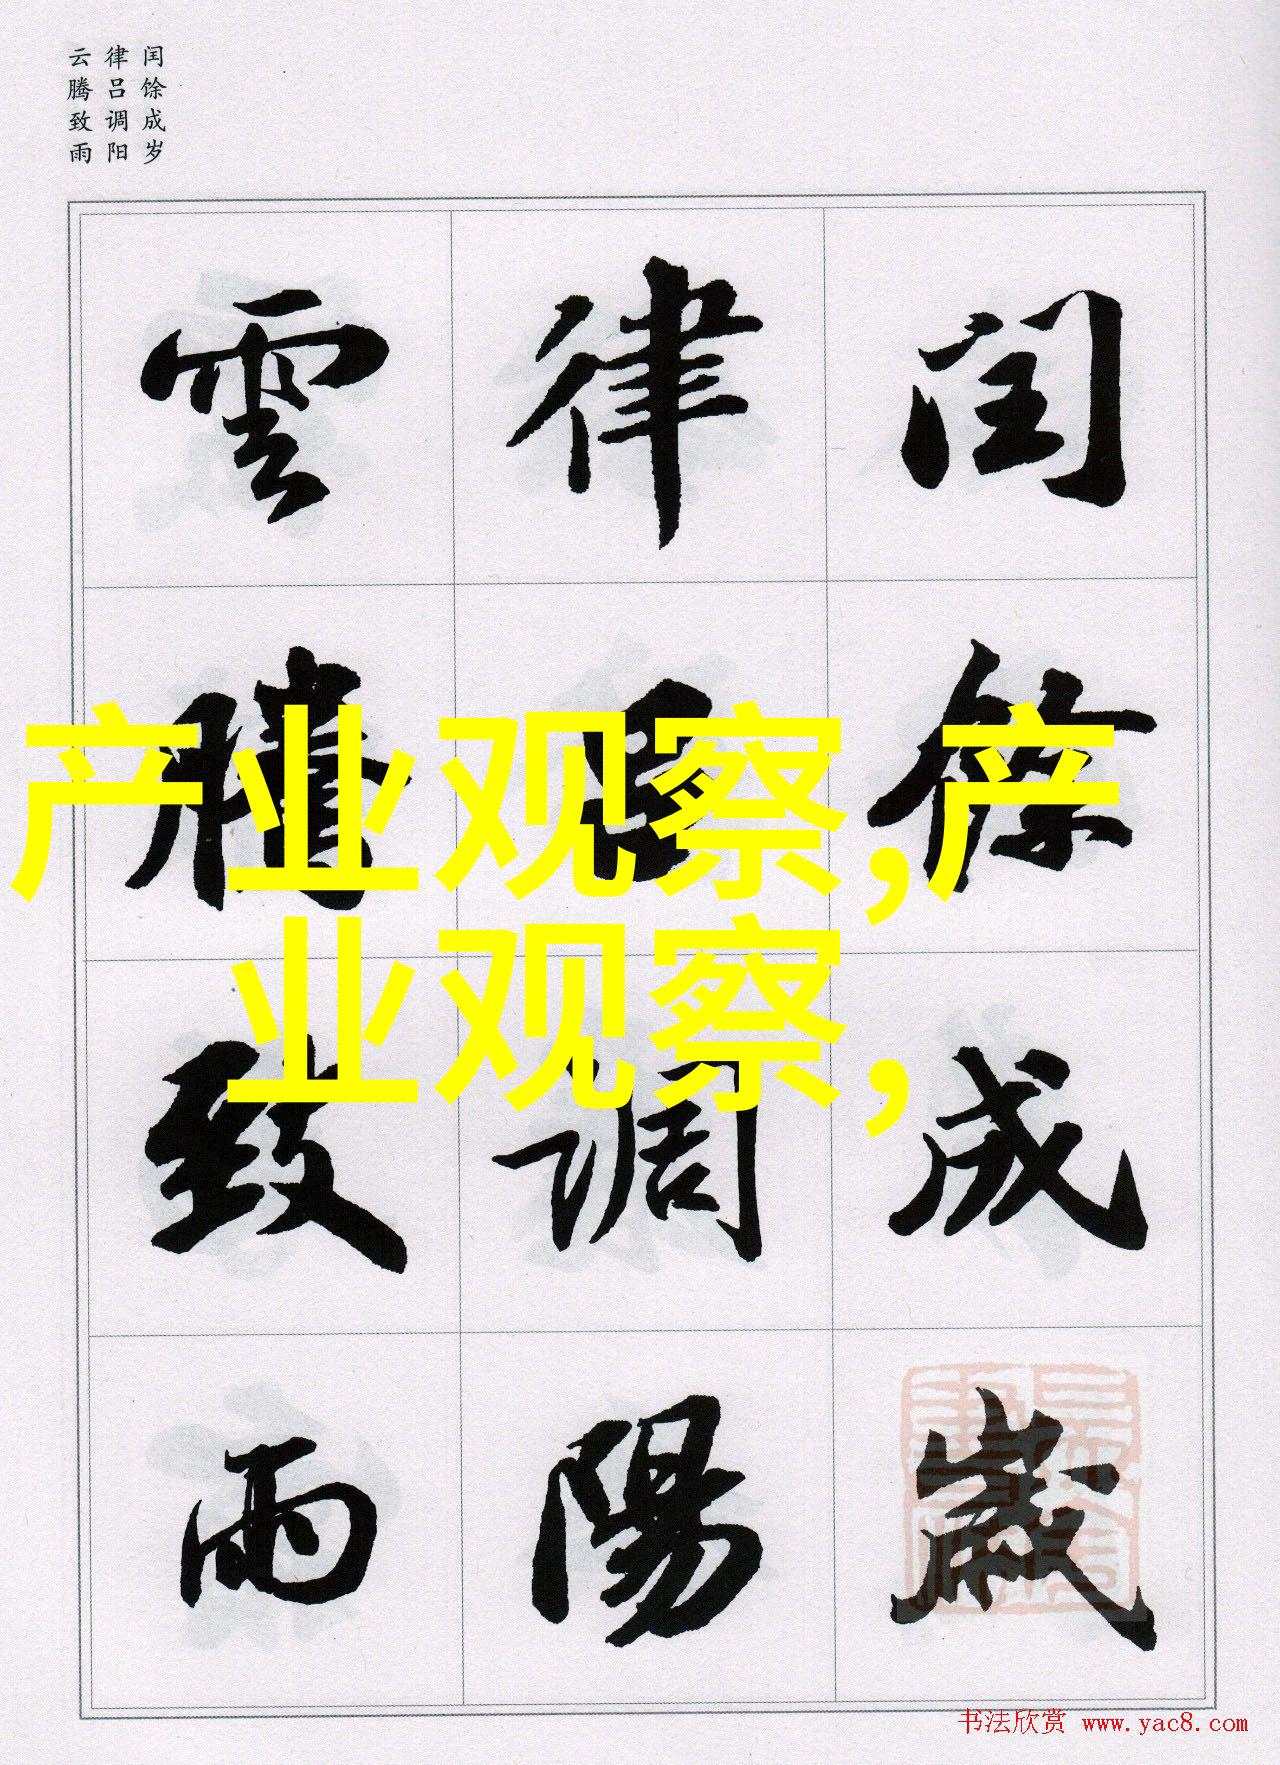 闰馀成岁
律吕调阳
云腾致雨
閏餘成歲
律呂調陽
雲騰致雨
产业观察,产
业观察,
书法欣赏 www.yac8.com